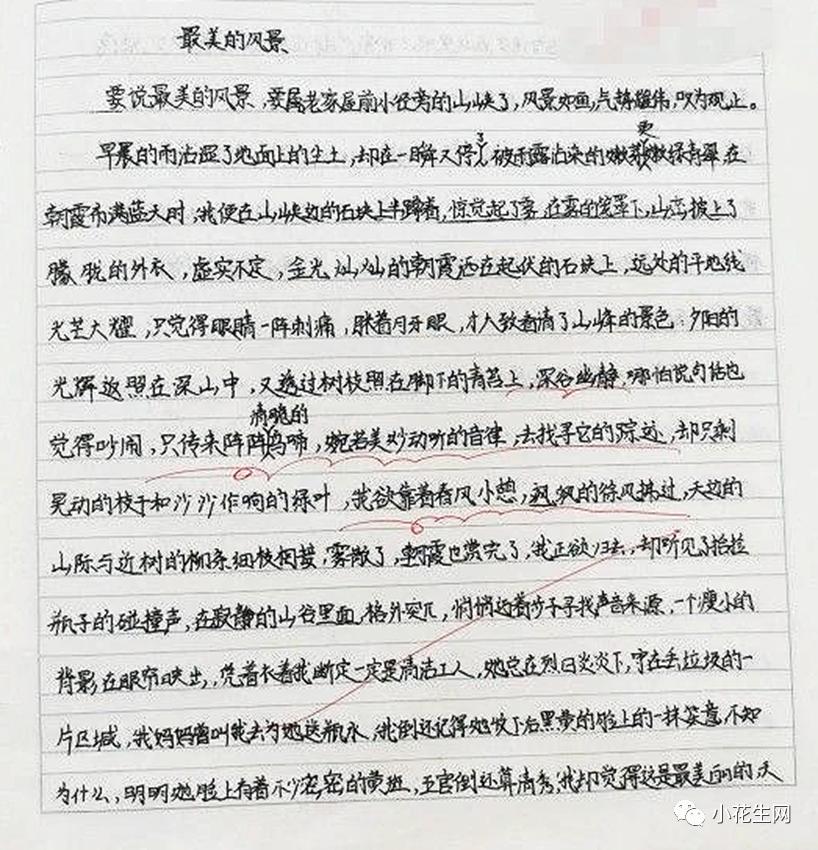 最美的风景
要说最美的风景,要属老家屋前小径旁的山峡了,风景如画,气势雄伟,叹为观止。
早晨的雨沾湿了地面上的尘土,却在一瞬又停了,被雨露沾染的嫩更嫩绿青翠,在
朝霞布满蓝天时,我便在山峡边的石块上半蹲着,惊觉起了雾,在雾的笼罩下,山峦披上了
朦胧的外衣,虚实不定,金光灿灿的朝霞洒在起伏的石块上,远处的平地线
光芒大耀,只觉得眼睛一阵刺痛,眯着月牙眼,才大致看清了山峰的景色:夕阳的
光辉返照在深山中,又透过树枝照在脚下的青苔上,深谷幽静,哪怕说句话也
觉得吵闹,只传来阵阵清晚的鸟啼,宛若美妙动听的音律,去找寻它的踪迹,却只剩
晃动的枝干和沙沙作响的绿叶,我欲靠着春风小憩,飒飒的徐风拂过,天边的
山际与近树的柳条细枝相接,雾散了,朝霞也赏完了,我正欲归去,却听见了拾垃
瓶子的碰撞声,在寂静的山谷里面,格外突兀,悄悄迈着步子寻找声音来源,一个瘦小的
背影在眼帘映出,凭着衣着我断定一定是清洁工人,她总在烈日炎炎下,守在丢垃圾的一
片区域,我妈妈曾叫我去为她送瓶水,我倒还记得她咬下后黑黄的脸上的一抹笑意,不知
为什么,明明她脸上有着不少密密的黄斑,五官倒还算清秀,我却觉得这是最美丽的,天
小花生网